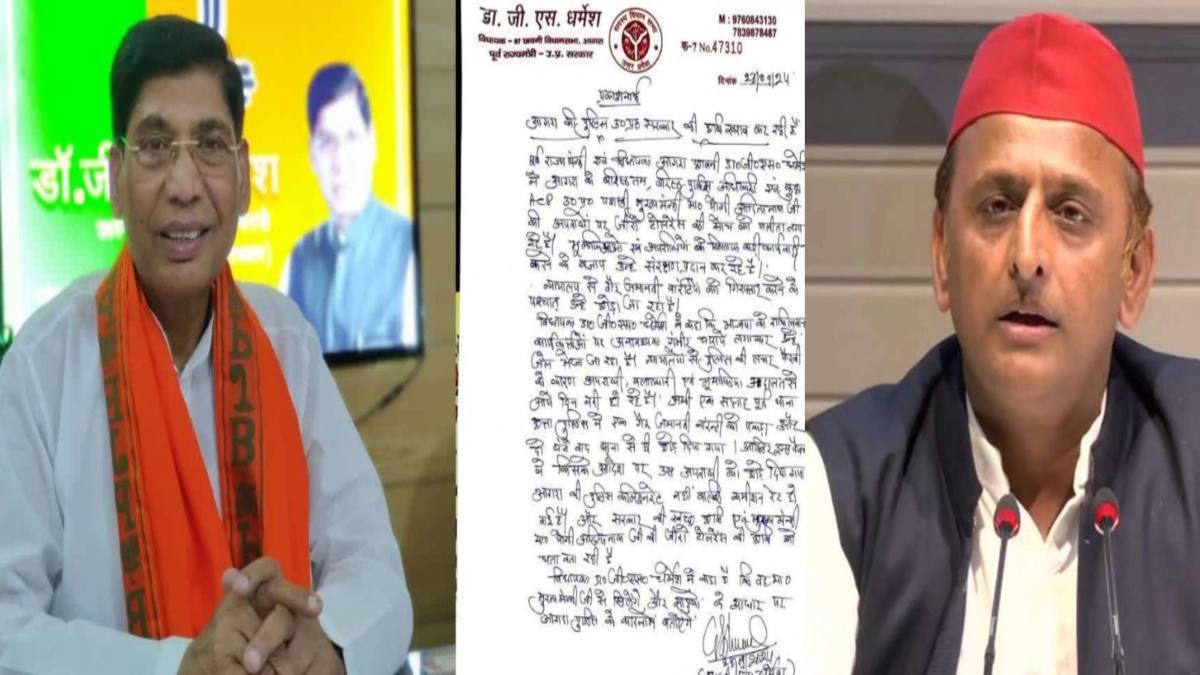 डॉ.जी
डा. जी. एस. धर्मेश
विधायक - 87 छावनी विधानसभा, आगरा
पूर्व राज्यमंत्री - उ.प्र. सरकार
M : 9760843130
7839878487
क-7 No.47310
दिनांक
प्रकाशनार्थ
आगरा की पुलिस उ०प्र० सरकार की छवि खराब कर रही है
पूर्व राज्य मन्त्री एवं विधायक आगरा छावनी डा०जी०एस० धर्मेश
ने आगरा के वरिष्ठतम, वरिष्ठ पुलिस अधिकारी एवं कुछ
ACP उ०प्र० यशस्वी मुख्यमन्त्री मा० योगी आदित्यनाथ जी
की अपराधों पर जीरो टोलरेंस की सोच को पलीता लगा
रहे हैं। भूमाफियाओं एवं अपराधियों के खिलाफ कड़ी कार्यवाही
करने के बजाय उन्हें संरक्षण प्रदान कर रहे है।
न्यायालय से गैर जमानती वारंटियों को गिरफ्तार करने के
पश्चात उन्हें छोड़ा जा रहा है।
विधायक डा०जी०एस० धर्मेश ने कहा कि भाजपा के
कार्यकर्त्ताओं पर अनावश्यक गंभीर धाराऐं लगाकर उन्हें
जेल भेजा जा रहा है। न्यायालयों में पुलिस की लचर पैरवी
के कारण अपराधी, बलात्कारी एवं भूमाफिया अदालत से
आये दिन बरी हो रहे है। अभी एक सप्ताह पूर्व थाना
छत्ता पुलिस ने एक गैर जमानती वारन्टी को पकड़ा और
दो घंटे बाद थाना से ही छोड़ दिया गया। आखिर इन्सपैक्टर
ने किसके आदेश पर उस अपराधी को छोड़ दिया गया
आगरा की पुलिस कमिश्नरेट नहीं बल्कि कमीशन रेट हो
गई है। और सरकार की स्वच्छ छवि एवं मुख्य मन्त्री
मा० योगी आदित्यनाथ जी की जीरो टोलरेंस की छवि को
धता बता रही है
विधायक डा०जी०एस० धर्मेश ने कहा है कि वह मा०
मुख्य मन्त्री जी से मिलेंगे और साक्ष्यों के आधार पर
आगरा पुलिस के कारनामे बताऐंगे